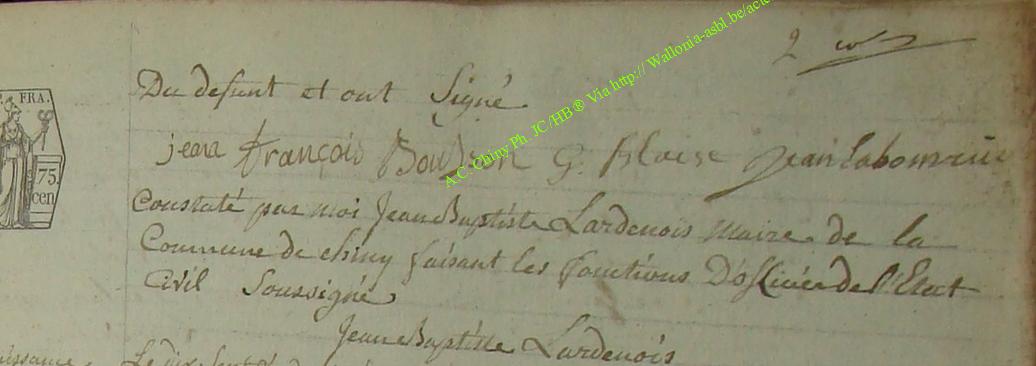 2
Du defunt et ont Signé
FRA.
75.
cen
jean François G. Blaise jean
Constaté par moi Jean Baptiste Lardenois Maire de la
Commune de chiny faisant les fonctions D'officier de l'Etat
Civil Soussigné
Jean Baptiste Lardenois
Le dix
A.C. Chiny Ph. JC/HB® Via http:// Wallonia-asbl.be/acte